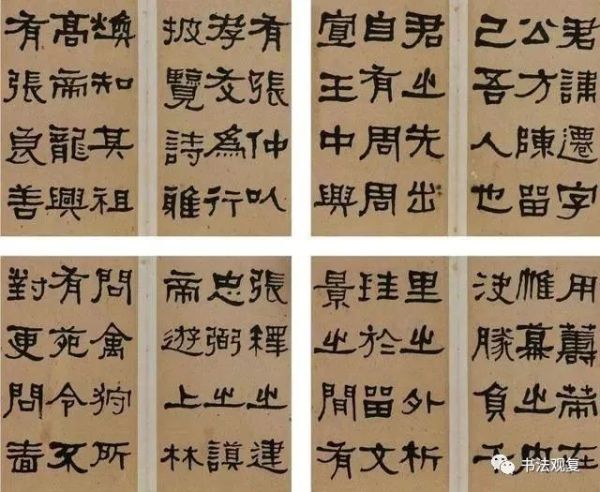 君諱遷字
公方陳留
己吾人也
君之先出
自有周周
宣王中興
有張仲以
孝友為行
披覽詩雅
煥知其祖
高帝龍興
有張良善
用籌策在
帷幕之內
決勝負千
里之外析
珪於留文
景之間有
張釋之建
忠弼之謨
帝遊上林
問禽狩所
有苑令不
對更問嗇
书法观复